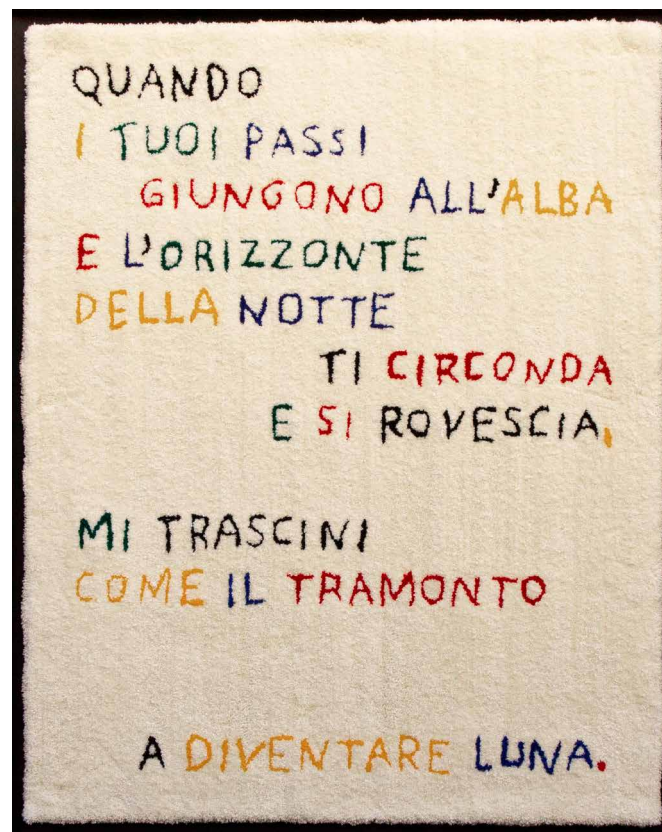 QUANDO
I TUOI PASSI
GIUNGONO ALL'ALBA
E L'ORIZZONTE
DELLA NOTTE
TI CIRCONDA
E SI ROVESCIA,
MI TRASCINI
COME IL TRAMONTO
A DIVENTARE LUNA.